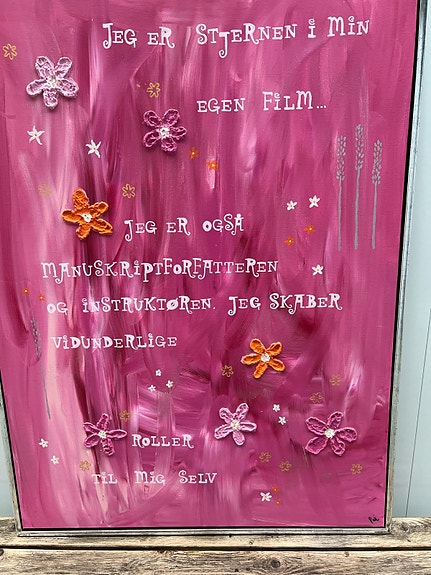 Jeg er stjernen i min
egen film...
Jeg er også
manuskriptforfatteren
og instruktøren. Jeg skaber
vidunderlige
roller
til mig selv